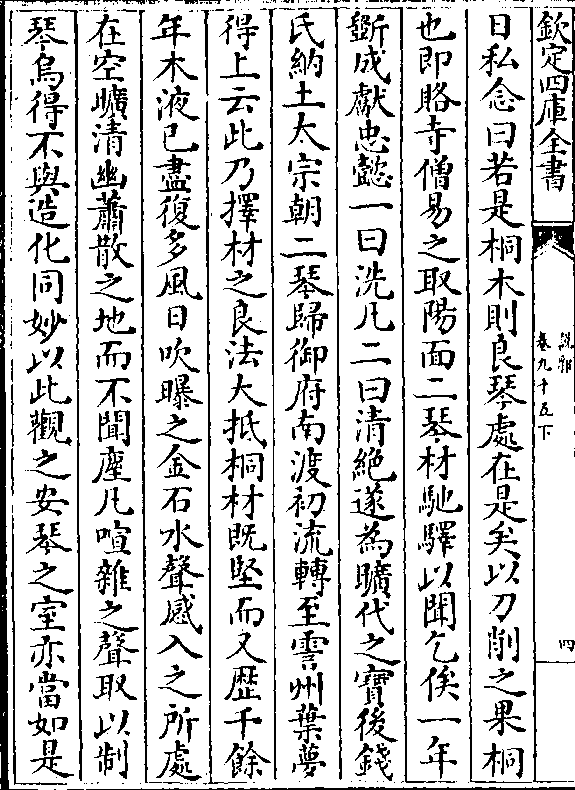 欽定四庫全書
說郛
卷九十五下
四
日私念曰若是桐木則良琴處在是矣以刀削之果桐
也即賂寺僧易之取陽面二琴材馳驛以聞乞俟一年
斵成獻忠懿一曰洗凡二曰清絶遂為曠代之寶後錢
氏納土太宗朝二琴歸御府南渡初流轉至霅州葉夢
得上云此乃擇材之良法大抵桐材既堅而又歴千餘
年木液已盡復多風日吹曝之金石水聲感入之所處
在空曠清幽蕭散之地而不聞塵凡喧雜之聲取以制
琴烏得不與造化同妙以此觀之安琴之室亦當如是